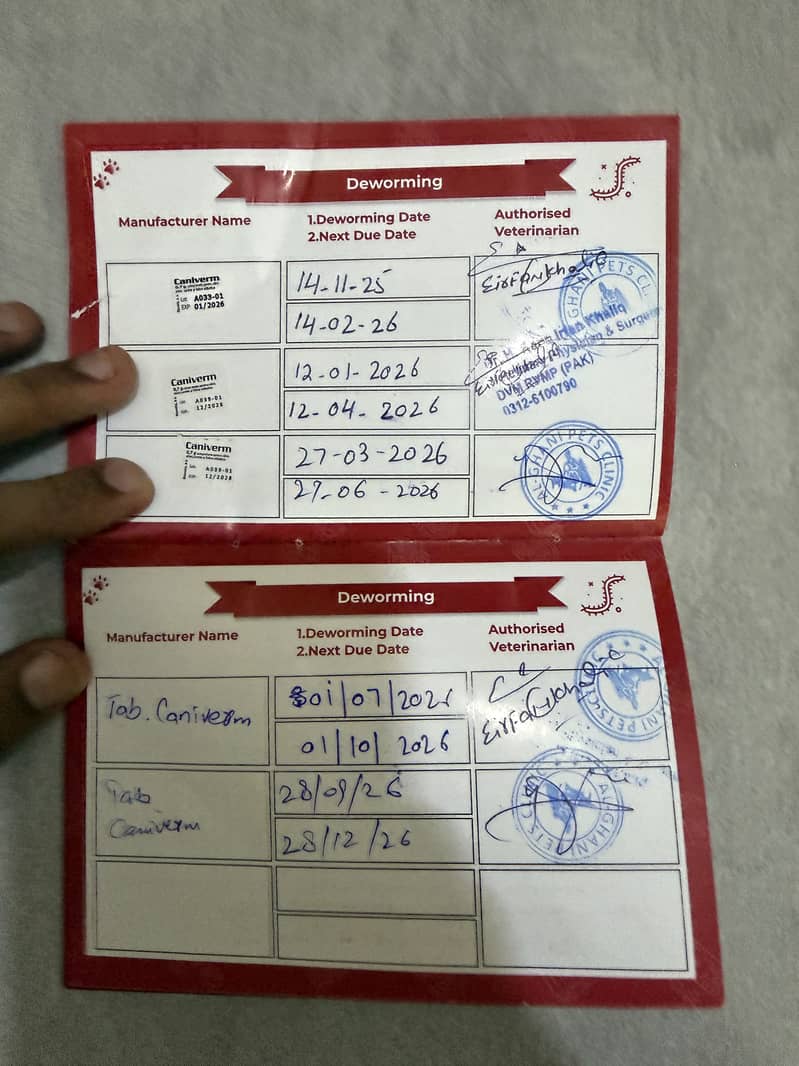 Deworming
Manufacturer Name
1.Deworming Date
2.Next Due Date
Authorised
Veterinarian
Caniverm
A033-01
EXP 01/2026
14-11-25
14-02-26
PETS CL
Irfan Khaliq
Physician & Surgeon
DVM RVMP (PAK)
0312-6100790
Caniverm
A039-01
12/2028
12-01-2026
12-04-2026
Caniverm
A039-01
12/2028
27-03-2026
27-06-2026
AFGHANI PETS CLINIC
Deworming
Manufacturer Name
1.Deworming Date
2.Next Due Date
Authorised
Veterinarian
Tab. Caniverm
01/07/2026
01/10/2026
AFGHANI PETS CLINIC
Tab
Caniverm
28/09/26
28/12/26
AFGHANI PETS CLINIC